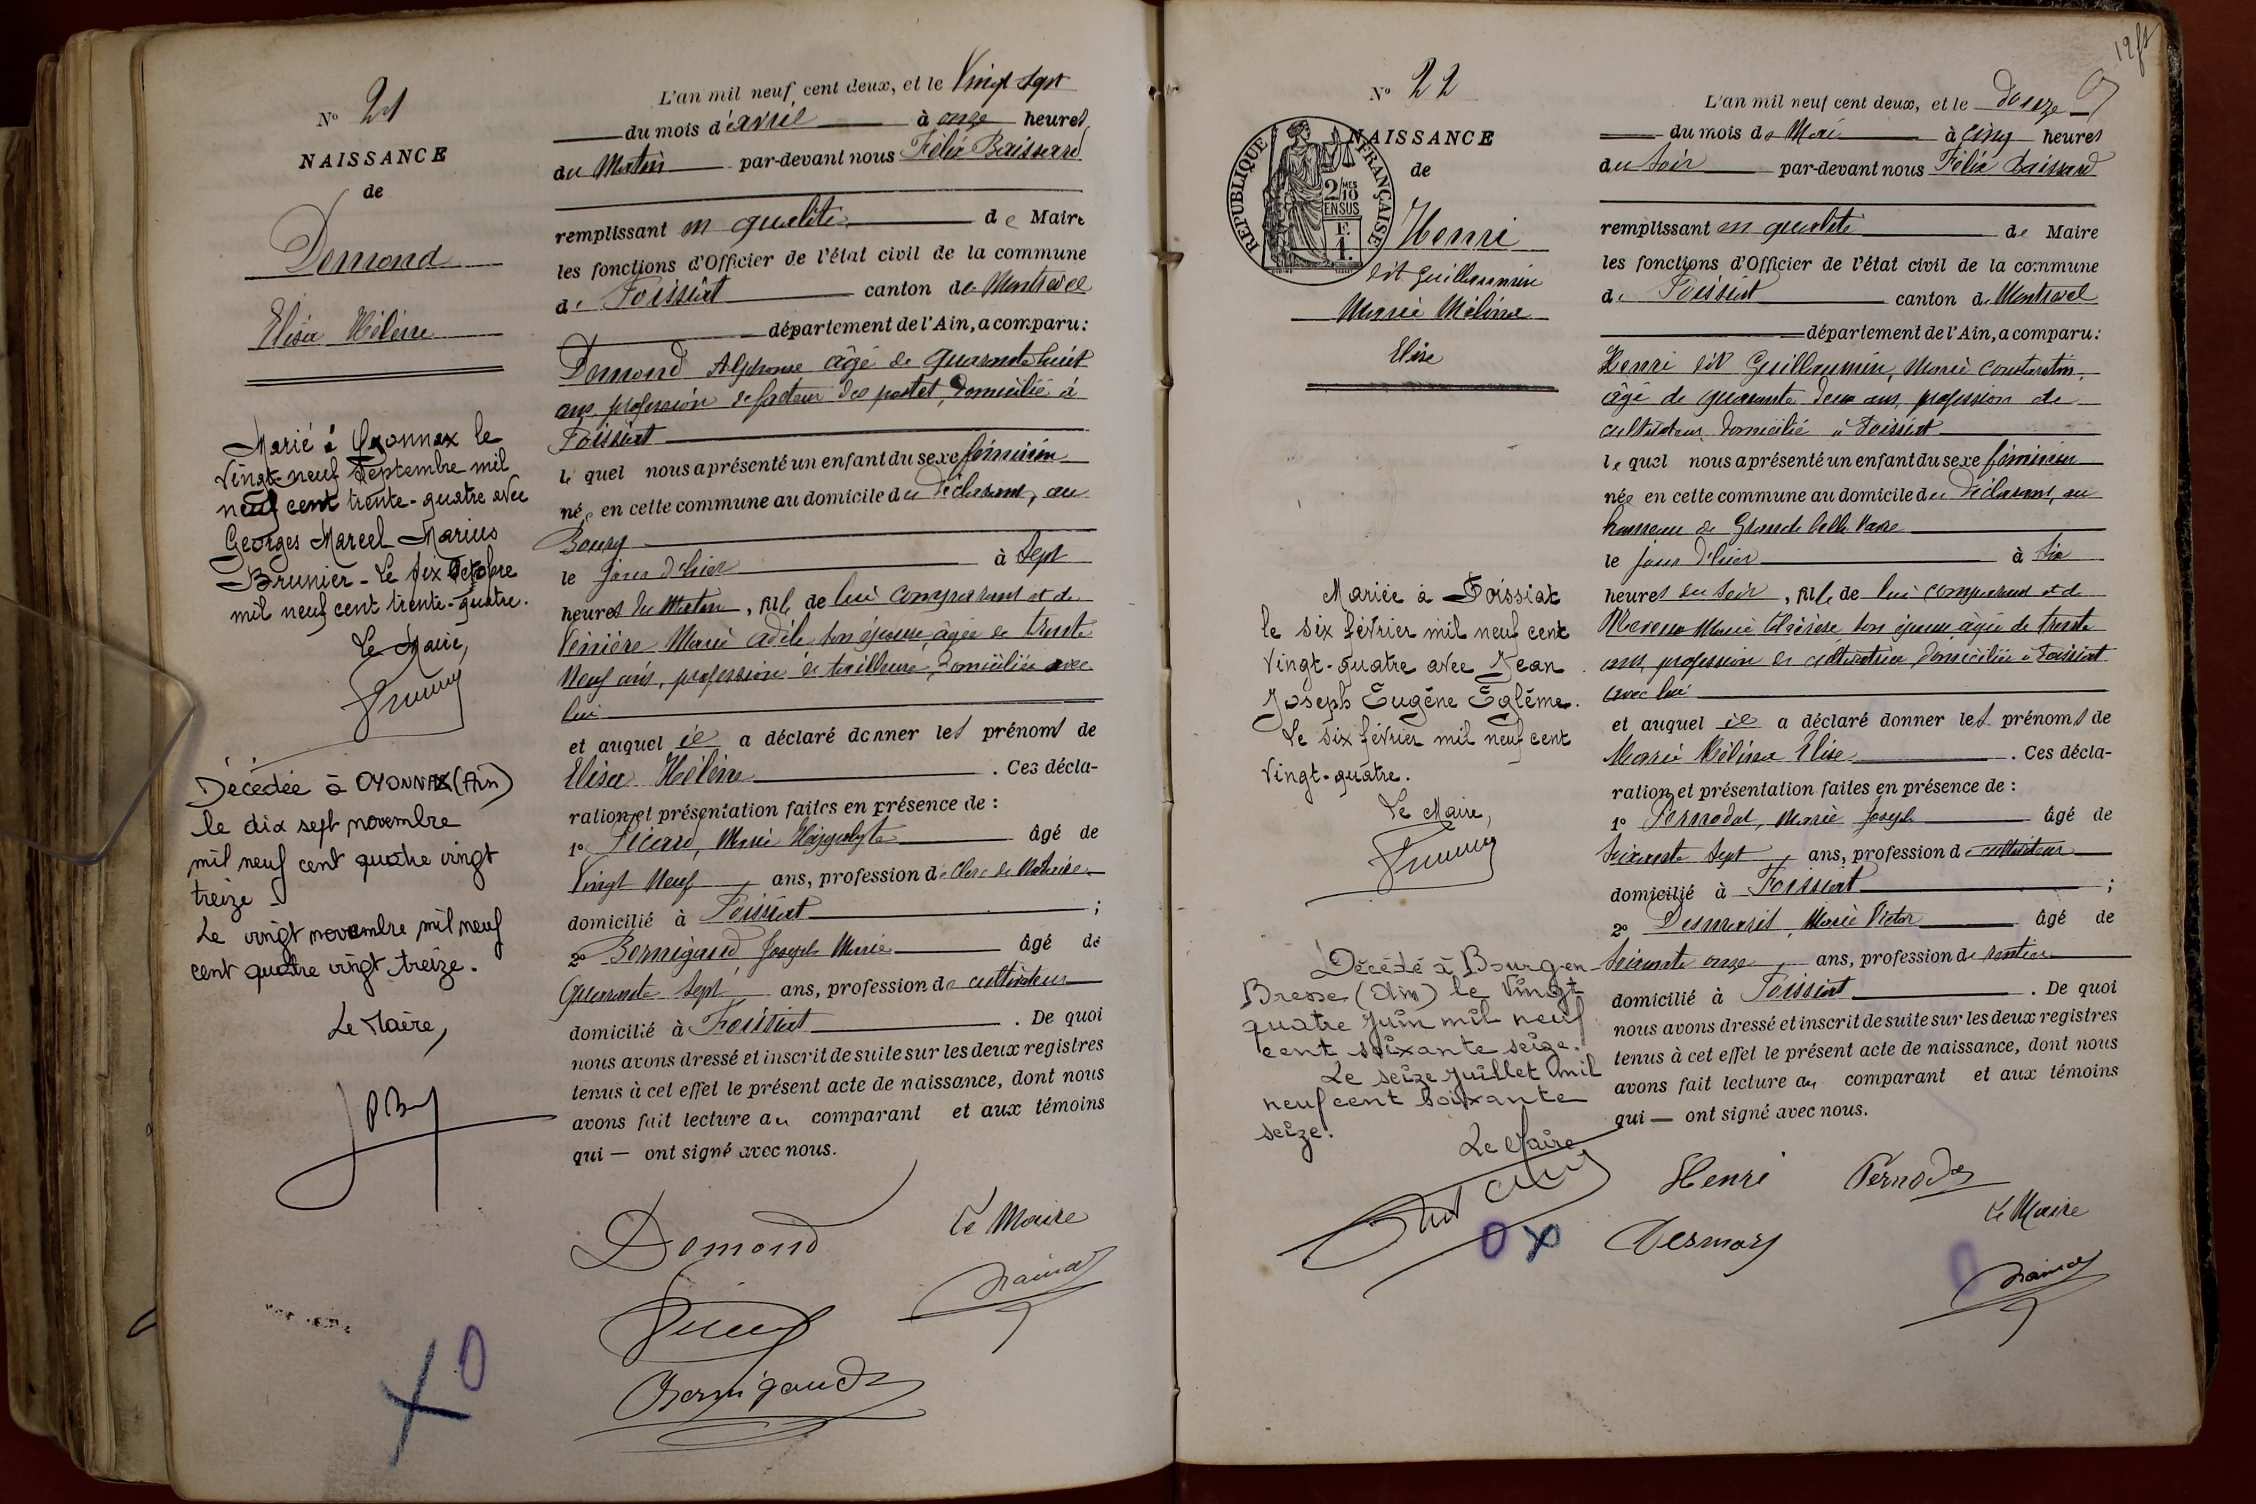 N° 21
NAISSANCE
de
Domond
Elisa Hélène
Marié à Oyonnax le
vingt-neuf Septembre mil
neuf cent trente-quatre avec
Georges Marcel Marius
Brunier - Le six Octobre
mil neuf cent trente-quatre.
Le Maire,
Décédée à OYONNAX (Ain)
le dix sept novembre
mil neuf cent quatre vingt
treize -
Le vingt novembre mil neuf
cent quatre vingt treize.
Le Maire,
L'an mil neuf cent deux, et le Vingt Sept
du mois d'avril à onze heures
du Matin par-devant nous Félix Baissard
remplissant en qualité de Maire
les fonctions d'Officier de l'état civil de la commune
de Foissiat canton de Montrevel
département de l'Ain, a comparu:
Domond Alphonse âgé de quarante huit
ans, profession de facteur des postes, domicilié à
Foissiat
lequel nous a présenté un enfant du sexe féminin
née en cette commune au domicile du déclarant, au
Bourg
le jour d'hier à Sept
heures du Matin, fille de lui comparant et de
Marie Adèle son épouse, âgée de trente
Neuf ans, profession de tailleuse, domiciliée avec
lui
et auquel il a déclaré donner les prénoms de
Elisa Hélène. Ces décla-
ration et présentation faites en présence de :
1° Picard, Marie Hippolyte âgé de
Vingt Neuf ans, profession de Clerc de Notaire
domicilié à Foissiat ;
2° Bornigaud Joseph Marie âgé de
Quarante Sept ans, profession de cultivateur
domicilié à Foissiat. De quoi
nous avons dressé et inscrit de suite sur les deux registres
tenus à cet effet le présent acte de naissance, dont nous
avons fait lecture au comparant et aux témoins
qui — ont signé avec nous.
Domond
Le Maire
Bornigaud
X 0
N° 22
NAISSANCE
de
REPUBLIQUE FRANÇAISE
2/10MES
EN SUS
F.
1.
Henri
dit Guillaumin
Marie Mélina
Elise
Mariée à Foissiat
le six février mil neuf cent
vingt-quatre avec Jean
Joseph Eugène Eglème.
Le six février mil neuf cent
vingt-quatre.
Le Maire,
Décédé à Bourg-en-
Bresse (Ain) le vingt
quatre Juin mil neuf
cent soixante seize.
Le seize Juillet mil
neuf cent soixante
seize.
Le Maire
0 X
L'an mil neuf cent deux, et le douze
du mois de Mai à cinq heures
du Soir par-devant nous Félix Baissard
remplissant en qualité de Maire
les fonctions d'Officier de l'état civil de la commune
de Foissiat canton de Montrevel
département de l'Ain, a comparu:
Henri dit Guillaumin, Marie
âgé de quarante deux ans, profession de
cultivateur domicilié à Foissiat
lequel nous a présenté un enfant du sexe féminin
née en cette commune au domicile du déclarant, au
hameau de Grande
le jour d'hier à Six
heures du soir, fille de lui comparant et de
Marie Thérèse, son épouse âgée de trente
ans, profession de cultivatrice, domiciliée à Foissiat
avec lui
et auquel il a déclaré donner les prénoms de
Marie Mélina Elise. Ces décla-
ration et présentation faites en présence de :
1° Pernodat, Marie Joseph âgé de
Soixante Sept ans, profession de cultivateur
domicilié à Foissiat ;
2° Desmaris, Marie Victor âgé de
Soixante onze ans, profession de rentier
domicilié à Foissiat. De quoi
nous avons dressé et inscrit de suite sur les deux registres
tenus à cet effet le présent acte de naissance, dont nous
avons fait lecture au comparant et aux témoins
qui — ont signé avec nous.
Henri
Le Maire
0